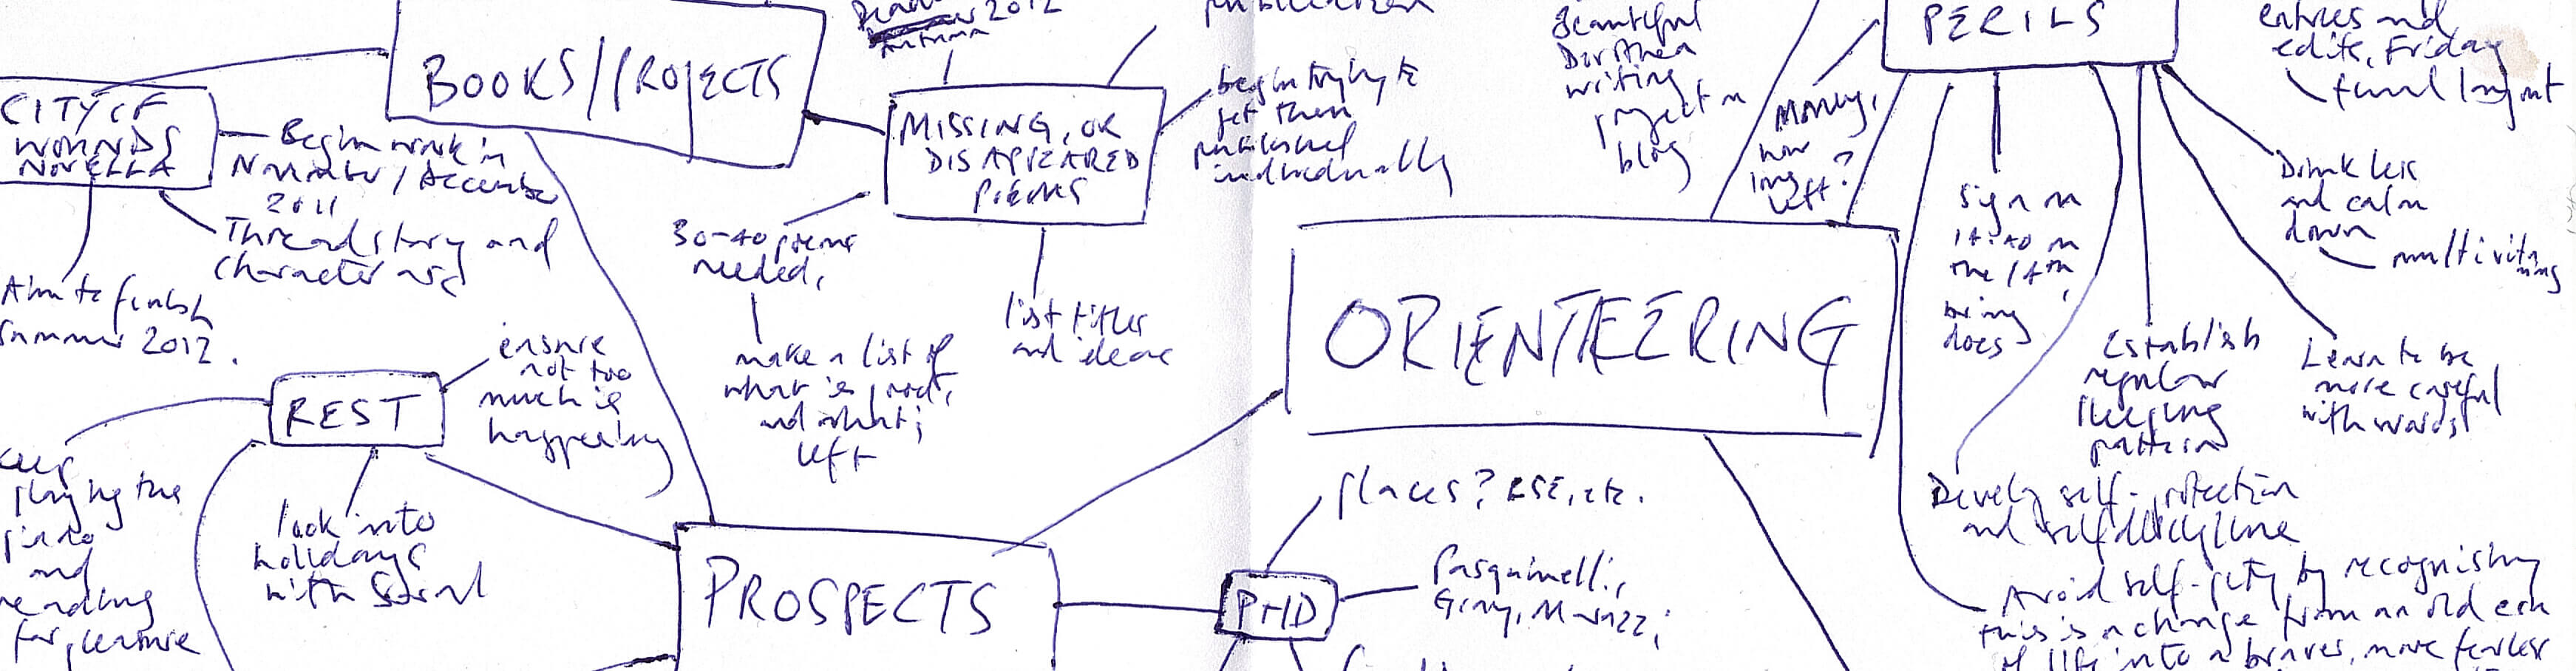 BOOKS/PROJECTS
CITY OF
WOUNDS
NOVELLA
Begin work in
November / December
2011
Thread story and
character arc
Aim to finish
summer 2012.
2012
Autumn
MISSING, OR
DISAPPEARED
POEMS
begin trying to
get them
published
individually
30-40 poems
needed,
make a list of
what is good,
and what is
left
list titles
and ideas
REST
ensure
not too
much is
happening
keep
playing the
piano
and
reading
for pleasure
look into
holidays
with
PROSPECTS
PHD
places? RSE, etc.
Pasquinelli,
Gray,
ORIENTEERING
Beautiful
Dorothea
writing
project on
blog
Money,
how
long
left?
PERILS
entries and
edits, Friday
final layout
Drink less
and calm
down
multivitamins
sign on
on
the 14th,
bring
docs
Establish
regular
sleeping
pattern
Learn to be
more careful
with words
Develop self-protection
and self discipline
Avoid self-pity by recognising
this is a change from an old era
of life into a braver, more fearless